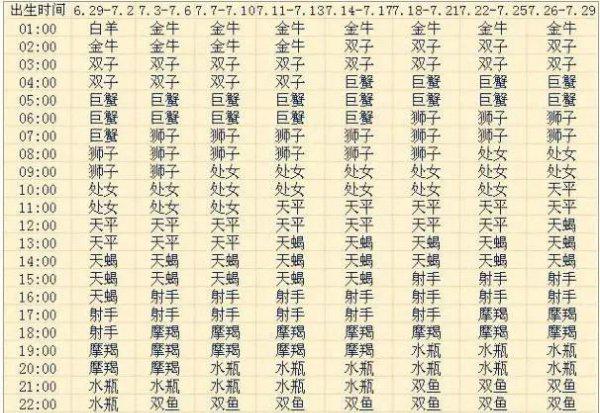 出生时间 6.29-7.2 7.3-7.6 7.7-7.10 7.11-7.13 7.14-7.17 7.18-7.21 7.22-7.25 7.26-7.29
01:00 白羊 金牛 金牛 金牛 金牛 金牛 金牛 金牛
02:00 金牛 金牛 金牛 金牛 双子 双子 双子 双子
03:00 双子 双子 双子 双子 双子 双子 双子 双子
04:00 双子 双子 双子 双子 巨蟹 巨蟹 巨蟹 巨蟹
05:00 巨蟹 巨蟹 巨蟹 巨蟹 巨蟹 巨蟹 巨蟹 巨蟹
06:00 巨蟹 巨蟹 巨蟹 巨蟹 巨蟹 狮子 狮子 狮子
07:00 巨蟹 狮子 狮子 狮子 狮子 狮子 狮子 狮子
08:00 狮子 狮子 狮子 狮子 狮子 狮子 处女 处女
09:00 狮子 狮子 处女 处女 处女 处女 处女 处女
10:00 处女 处女 处女 处女 处女 处女 处女 天平
11:00 处女 处女 处女 天平 天平 天平 天平 天平
12:00 天平 天平 天平 天平 天平 天平 天平 天蝎
13:00 天平 天平 天平 天蝎 天蝎 天蝎 天蝎 天蝎
14:00 天蝎 天蝎 天蝎 天蝎 天蝎 天蝎 天蝎 天蝎
15:00 天蝎 天蝎 天蝎 天蝎 天蝎 射手 射手 射手
16:00 天蝎 射手 射手 射手 射手 射手 射手 射手
17:00 射手 射手 射手 射手 射手 射手 摩羯 摩羯
18:00 射手 摩羯 摩羯 摩羯 摩羯 摩羯 摩羯 摩羯
19:00 摩羯 摩羯 摩羯 摩羯 摩羯 水瓶 水瓶 水瓶
20:00 摩羯 摩羯 水瓶 水瓶 水瓶 水瓶 水瓶 水瓶
21:00 水瓶 水瓶 水瓶 水瓶 水瓶 双鱼 双鱼 双鱼
22:00 水瓶 双鱼 双鱼 双鱼 双鱼 双鱼 双鱼 双鱼